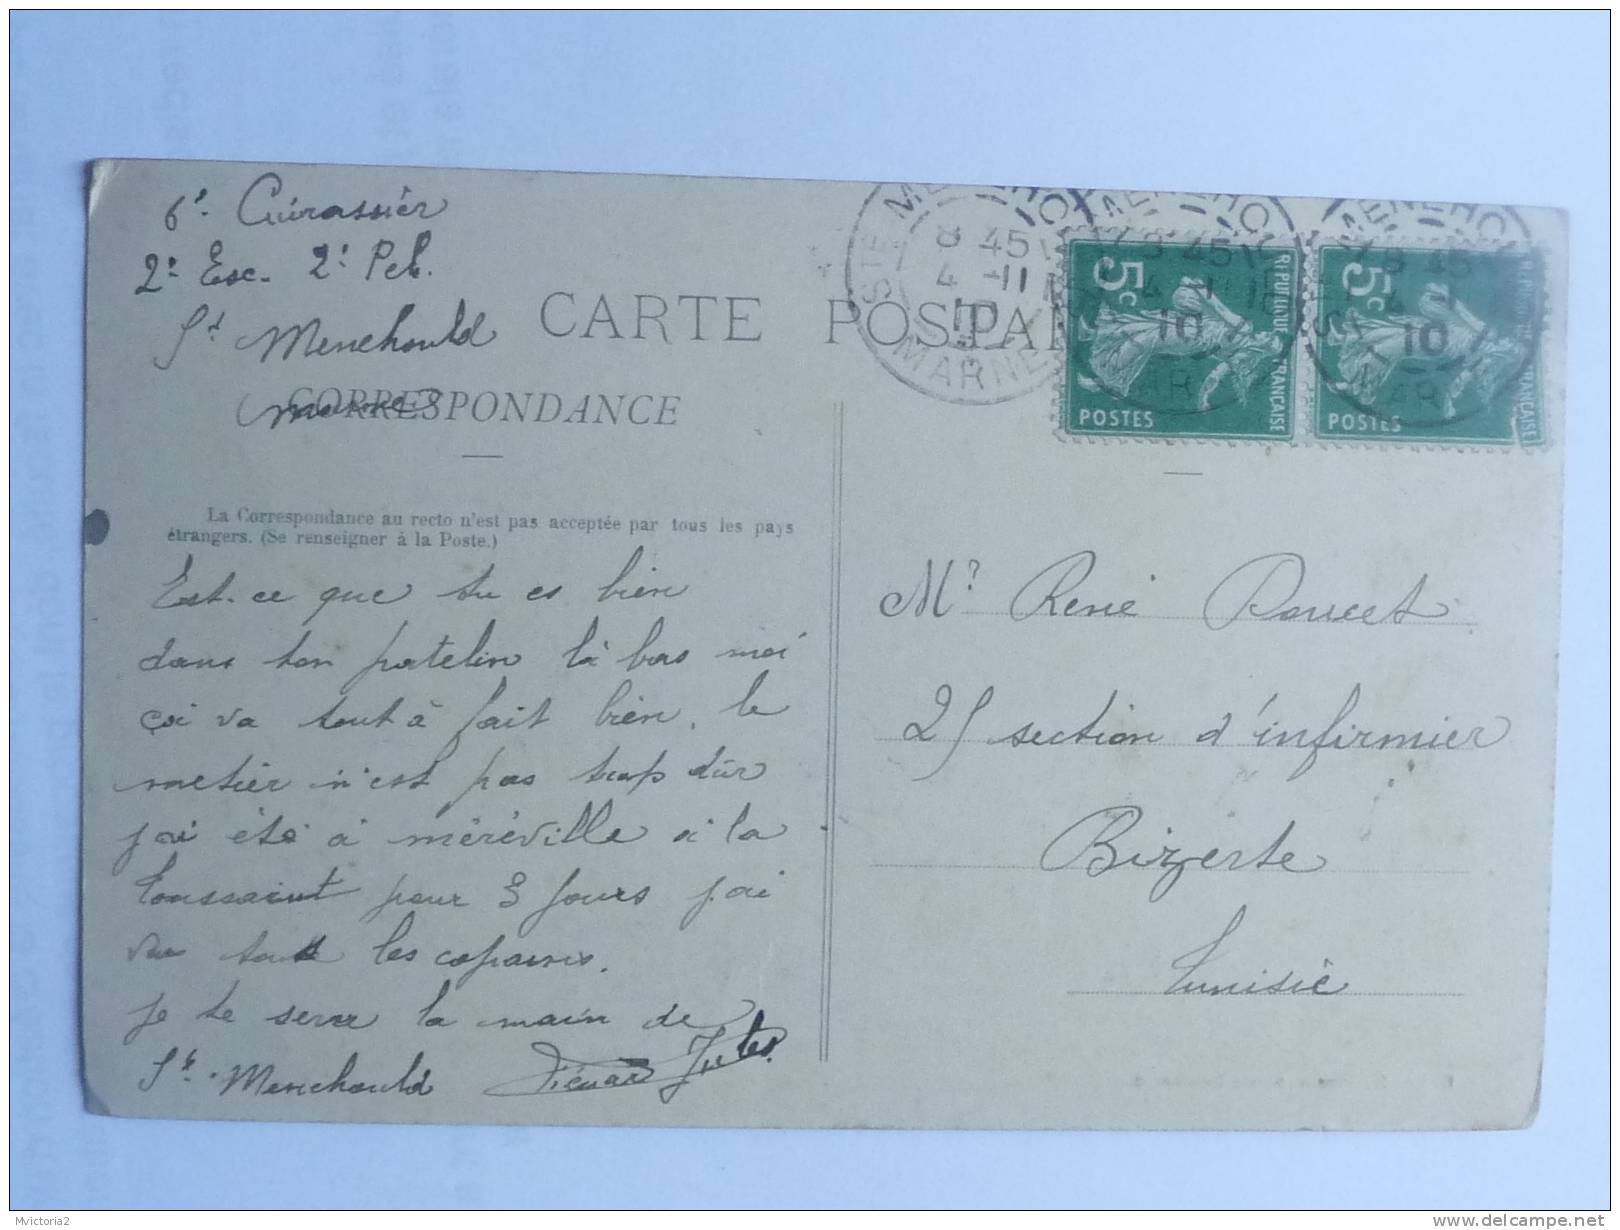 6e Cuirassier
2e Esc. 2e Pel.
St Menehould
Marne
CARTE POSTALE
CORRESPONDANCE
La Correspondance au recto n'est pas acceptée par tous les pays
étrangers. (Se renseigner à la Poste.)
Est-ce que tu es bien
dans ton patelin là bas moi
ça va tout à fait bien, le
metier n'est pas trop dûr
j'ai été à méréville à la
Toussaint pour 3 jours j'ai
vu tout les copains.
je te serre la main de
St. Menehould Jules
STE MENEHO
8 45
4 -11
10
MARNE
8 45
4 -11
10
MAR
8 45
4 -1
10
MAR
5c
RÉPUBLIQUE FRANÇAISE
POSTES
5c
RÉPUBLIQUE FRANÇAISE
POSTES
Mr René Doucet
25 section d'infirmier
Bizerte
Tunisie
Mvictoria2
www.delcampe.net